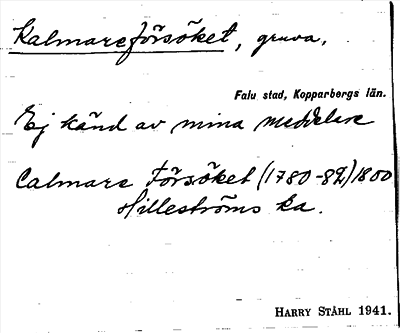 Kalmareförsöket, gruva,
Falu stad, Kopparbergs län.
Ej känd av mina meddelare
Calmare Försöket (1780-82) 1800
Hilleströms ka.
HARRY STÅHL 1941.